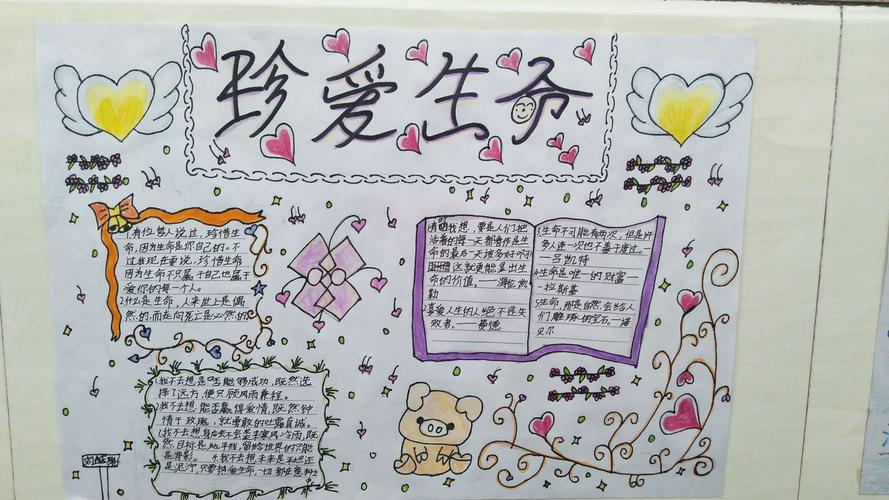 珍爱生命
1.有位哲人说过,珍惜生
命,因为生命是你自己的。不
过我现在要说,珍惜生命
因为生命不只属于自己也属于
爱你的每一个人。
2.什么是生命,人来世上是偶
然的而走向死亡是必然的
我想,要是人们把
活着的每一天都看作是生
命的最后一天该多好啊
这就更能显出生
命的价值。——海伦凯
勒
2.喜爱人生的人绝不是失
败者。——费德
3.生命不可能有两次,但是许
多人连一次也不善于度过。—
—吕凯特
4.生命是唯一的财富—
—拉斯基
5.生命,那是自然会给人
们雕琢的宝石。—诺
贝尔
1.我不去想是否能够成功,既然选
择了远方,便只顾风雨兼程。
2.我不去想,能否赢得爱情,既然钟
情于玫瑰,就勇敢的吐露真诚。
3.我不去想身后会不会袭来寒风冷雨,既
然目标是地平线,留给世界的只能
是背影。4.我不去想未来是平坦还
是泥泞,只要热爱生命,一切都在意料之